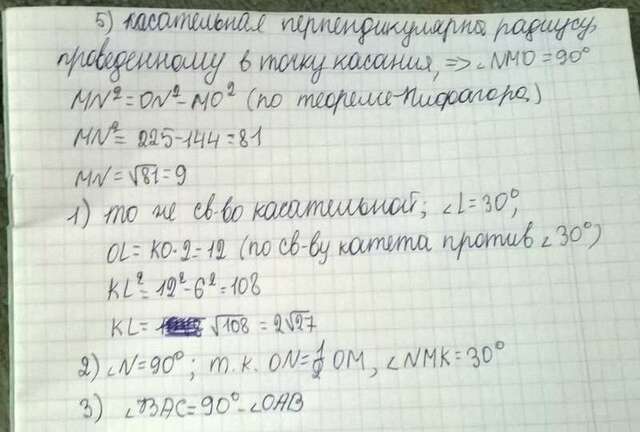 5) касательная перпендикулярна радиусу,
проведенному в точку касания, => ∠NMO = 90°
MN² = ON² - MO² (по теореме Пифагора)
MN² = 225 - 144 = 81
MN = √81 = 9
1) то же св-во касательной; ∠L = 30°,
OL = KO·2 = 12 (по св-ву катета против ∠30°)
KL² = 12² - 6² = 108
KL = √108 = 2√27
2) ∠N = 90°; т.к. ON = 1/2 OM, ∠NMK = 30°
3) ∠BAC = 90° - ∠OAB